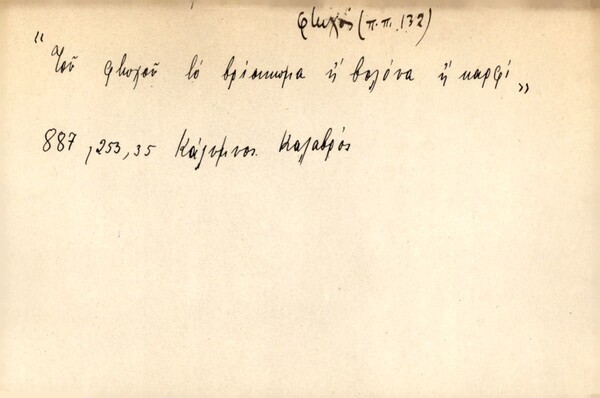 φτωχός (π.π. 132)
“Τοῦ φτωχοῦ τό βρίσκωμα ἤ βελόνα ἤ καρφί„
887, 253, 35 Κάλυμνος. Καλαβρός